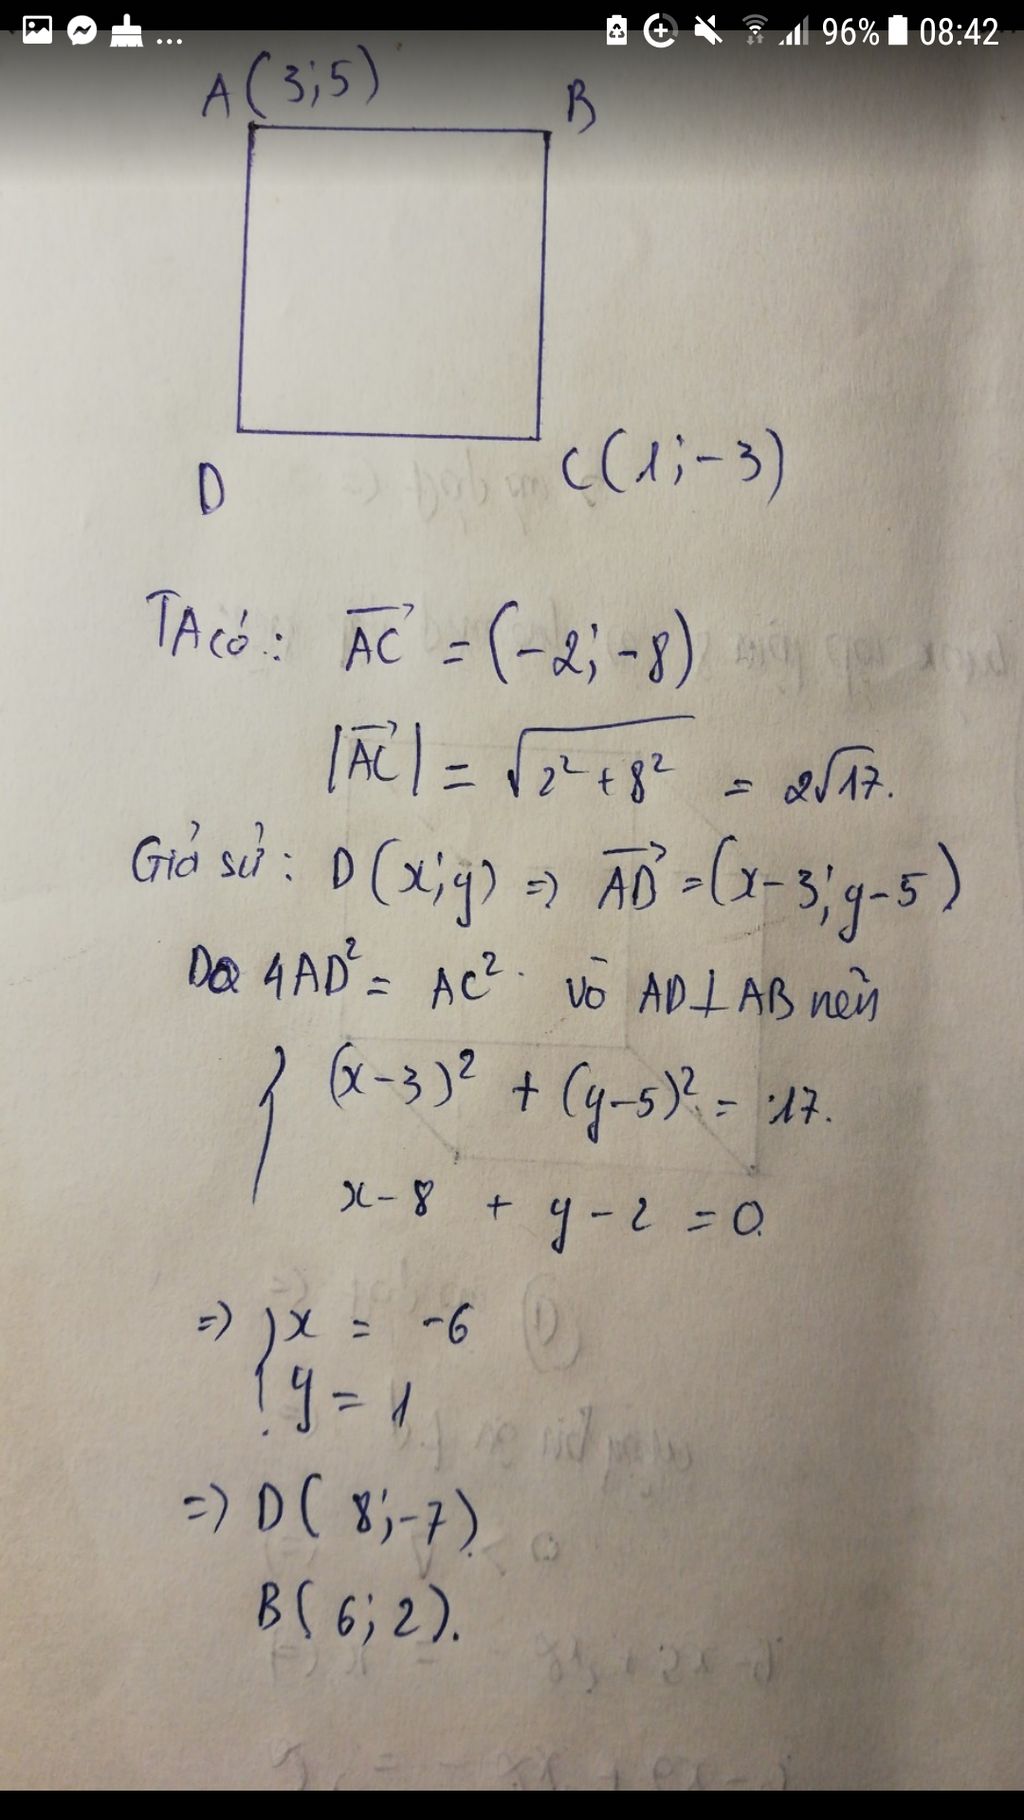 ... 96% 08:42
A(3;5) B
D C(1;-3)
TA có: AC⃗ = (-2;-8)
|AC⃗| = √(2² + 8²) = 2√17.
Giả sử: D(x;y) => AD⃗ = (x-3; y-5)
Do 4AD² = AC² và AD⊥AB nên
{ (x-3)² + (y-5)² = 17.
x-8 + y-2 = 0.
=> { x = -6
y = 1
=> D(8;-7)
B(6;2).